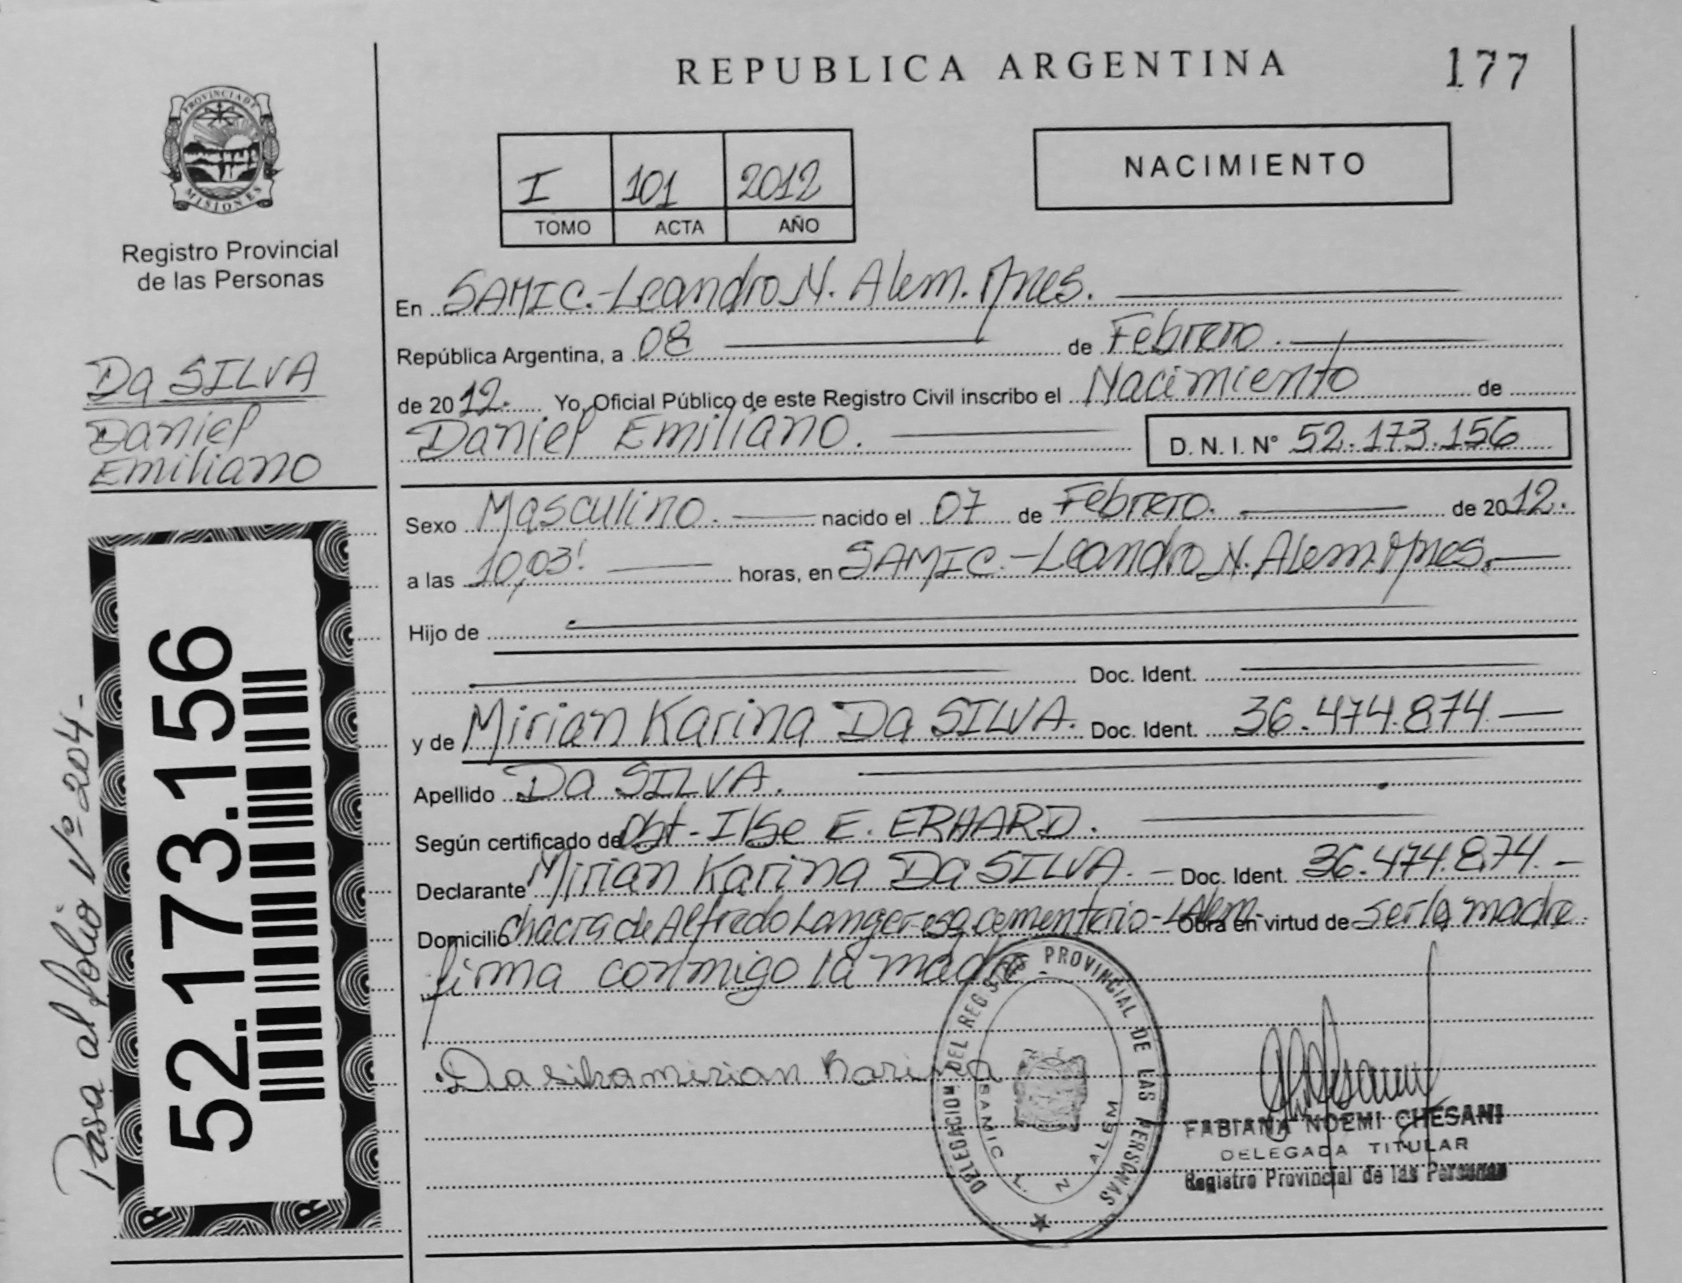 REPUBLICA ARGENTINA
177
PROVINCIA DE
MISIONES
Registro Provincial
de las Personas
I 101 2012
TOMO ACTA AÑO
NACIMIENTO
En SAMIC.-Leandro N. Alem. Mnes.
República Argentina, a 08 de Febrero.
de 2012. Yo, Oficial Público de este Registro Civil inscribo el Nacimiento de
Daniel Emiliano. D. N. I. N° 52.173.156
Da SILVA
Daniel
Emiliano
Sexo Masculino. nacido el 07 de Febrero. de 2012.
a las 10,03! horas, en SAMIC.-Leandro N. Alem. Mnes.
Hijo de
Doc. Ident.
y de Mirian Karina Da SILVA. Doc. Ident. 36.474.874
Apellido Da SILVA.
Según certificado de Obst-Ilse E. ERHARD.
Declarante Mirian Karina Da SILVA. Doc. Ident. 36.474.874.
Domicilio chacra de Alfredo Langer esq cementerio-LAlem- Obra en virtud de ser la madre
firma conmigo la madre.
Da silva mirian Karina
DELEGACION DEL REGISTRO PROVINCIAL DE LAS PERSONAS
SAMIC L. N ALEM
FABIANA NOEMI CHESANI
DELEGADA TITULAR
Registro Provincial de las Personas
52.173.156
Pasa al folio Nº 204-